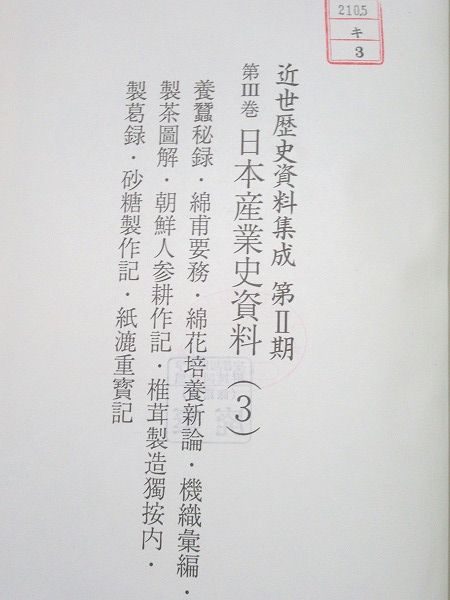 2105
キ
3
近世歴史資料集成 第Ⅱ期
第Ⅲ巻 日本産業史資料(3)
養蠶秘録・綿甫要務・綿花培養新論・機織彙編・
製茶圖解・朝鮮人参耕作記・椎茸製造獨按内・
製葛録・砂糖製作記・紙漉重寳記